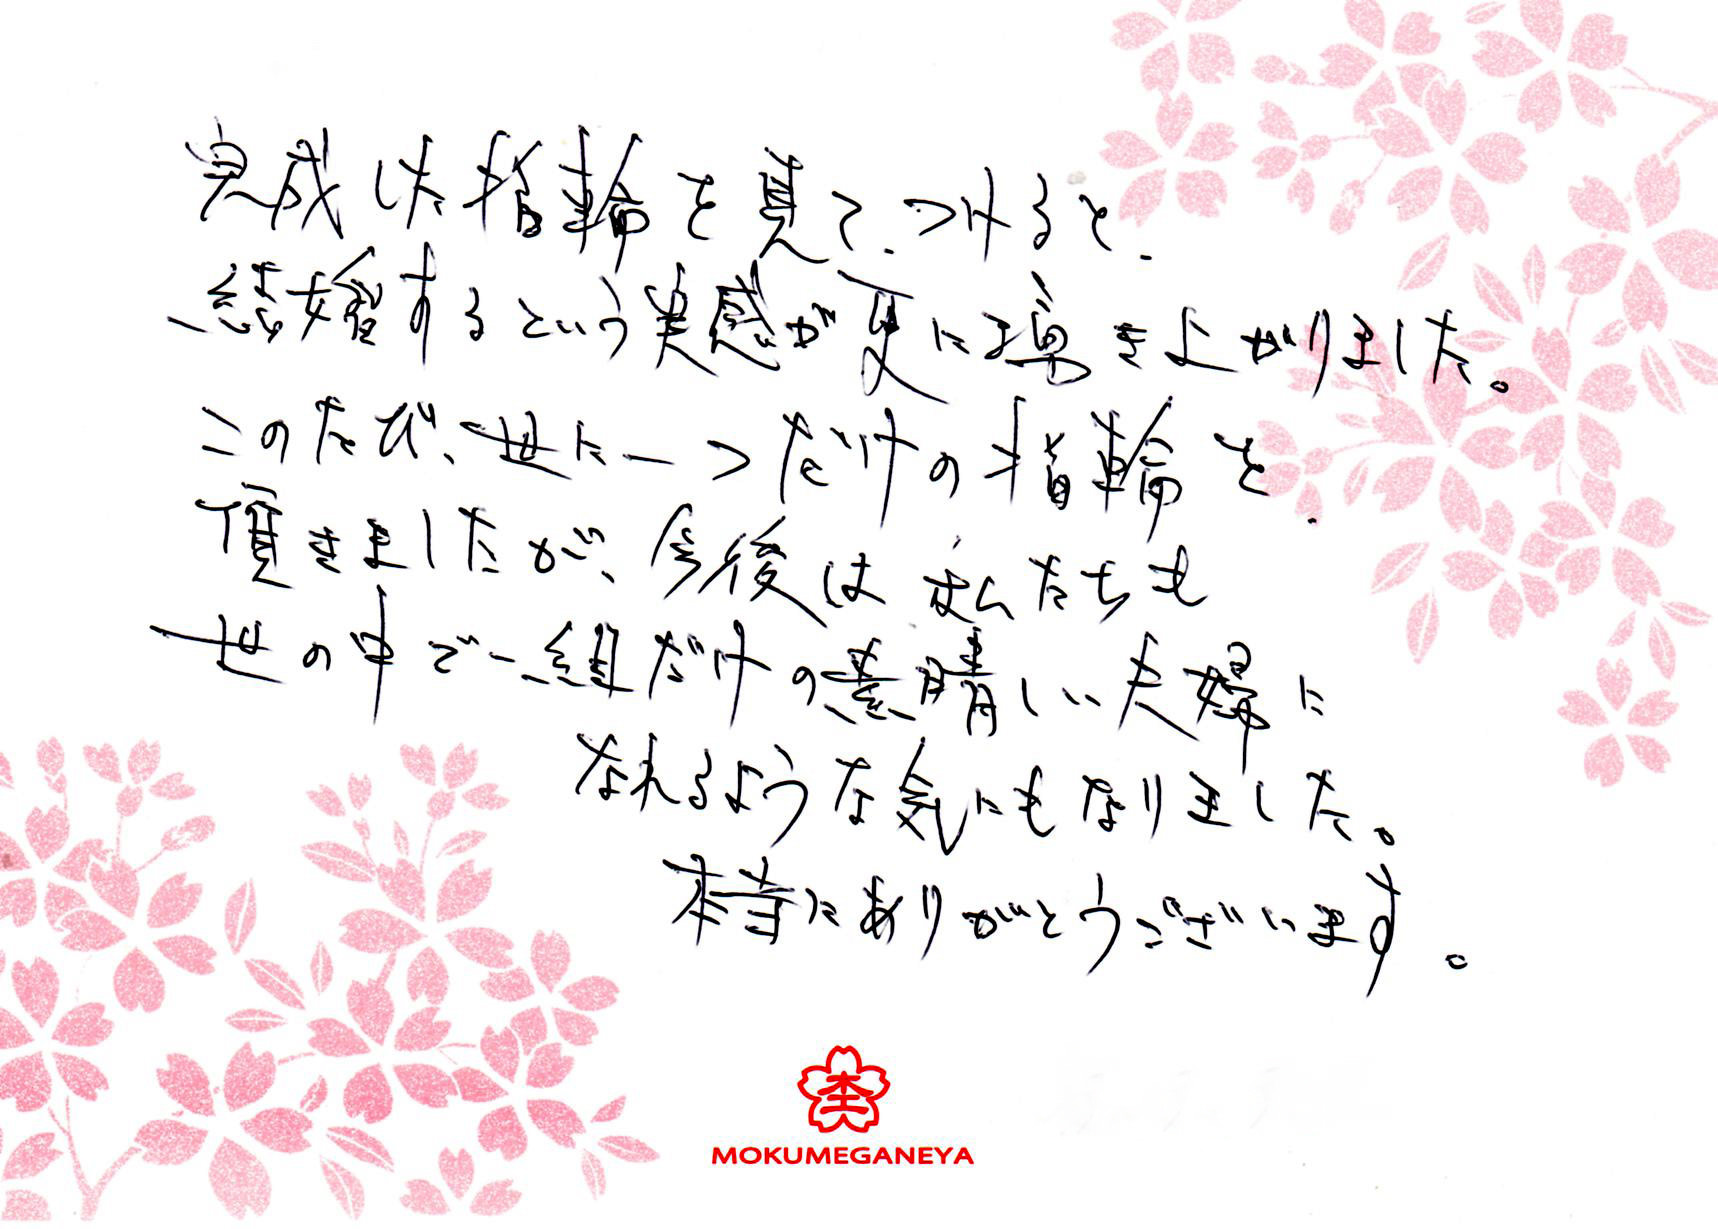 完成した指輪を見て、つけると、
結婚するという実感が更に湧き上がりました。
このたび、世に一つだけの指輪を、
頂きましたが、今後は私たちも
世の中で一組だけの素晴しい夫婦に
なれるような気にもなりました。
本当にありがとうございます。
MOKUMEGANEYA